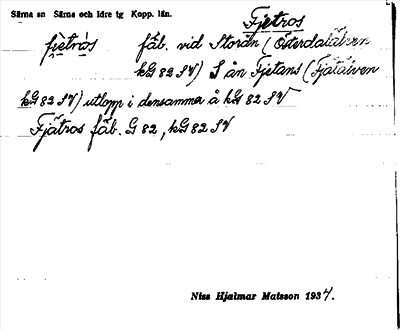 Särna sn Särna och Idre tg Kopp. län.
Fjetros
fjetros fäb. vid Storån (Österdalälven
kG 82 SV) S ån Fjetans (Fjätälven
kG 82 SV) utlopp i densamma å kG 82 SV
Fjätros fäb. G 82, kG 82 SV
Niss Hjalmar Matsson 1934.